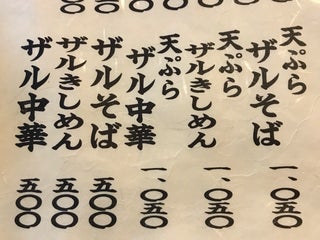 天ぷらザルそば 一、〇五〇
天ぷらザルきしめん 一、〇五〇
天ぷらザル中華 一、〇五〇
ザルそば 五〇〇
ザルきしめん 五〇〇
ザル中華 五〇〇